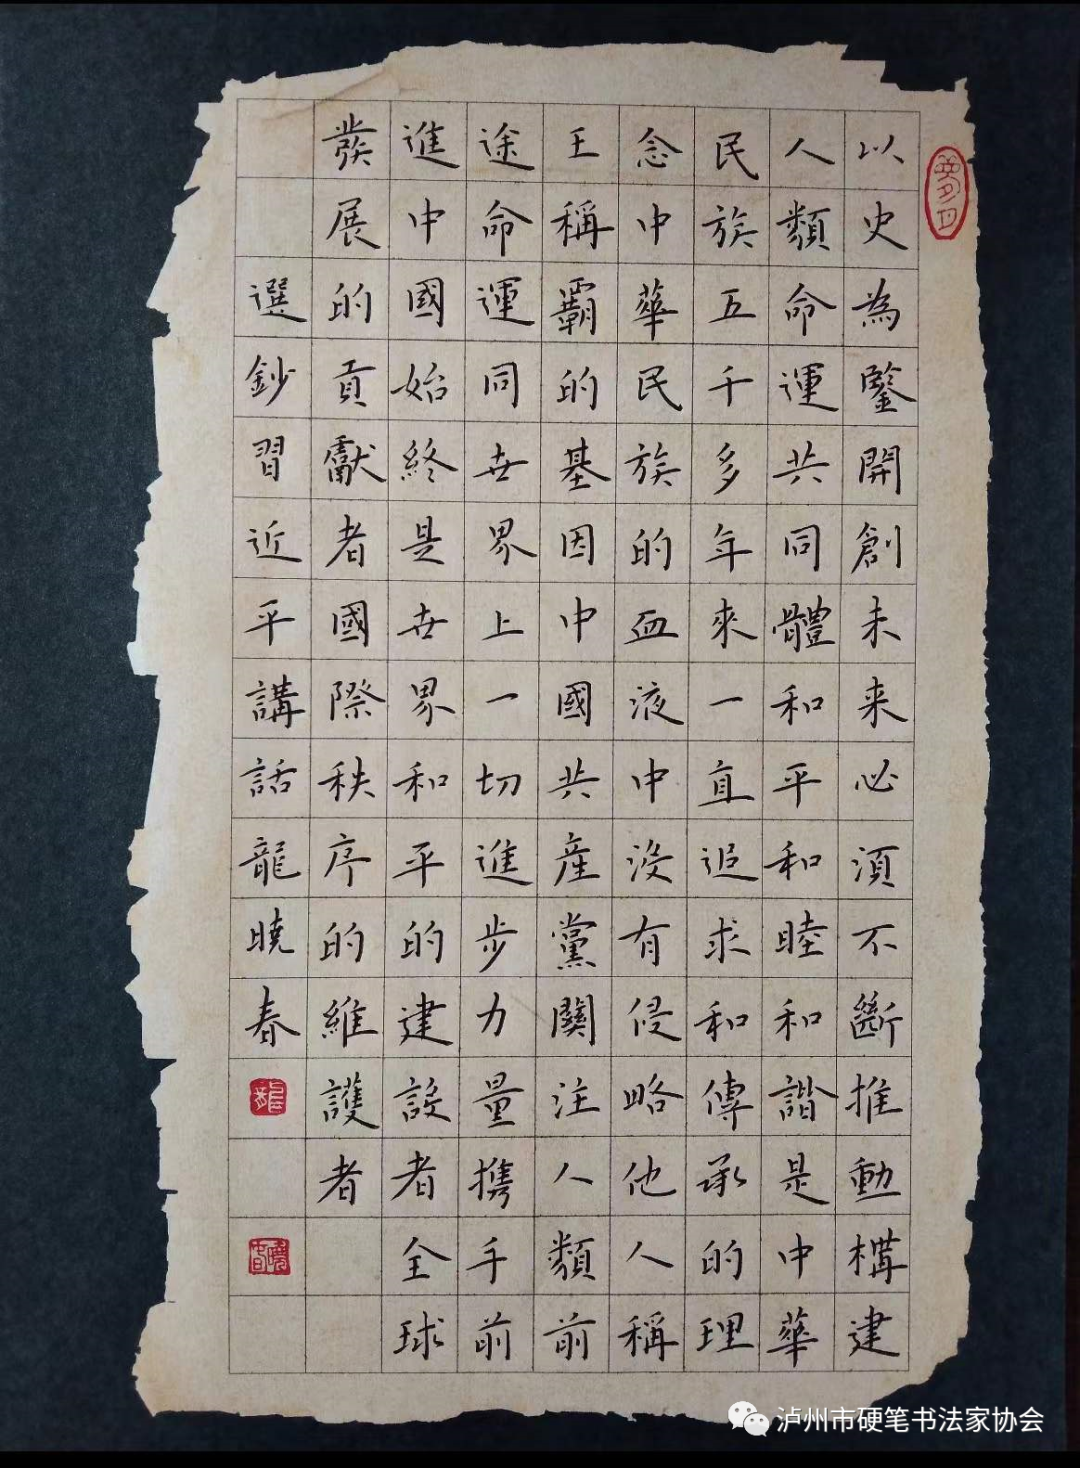 以史為鑒開創未来必須不斷推動構建
人類命運共同體和平和睦和諧是中華
民族五千多年來一直追求和傳承的理
念中華民族的血液中没有侵略他人稱
王稱霸的基因中國共産黨關注人類前
途命運同世界上一切進步力量携手前
進中國始終是世界和平的建設者全球
發展的貢獻者國際秩序的維護者
選鈔習近平講話龍曉春
泸州市硬笔书法家协会